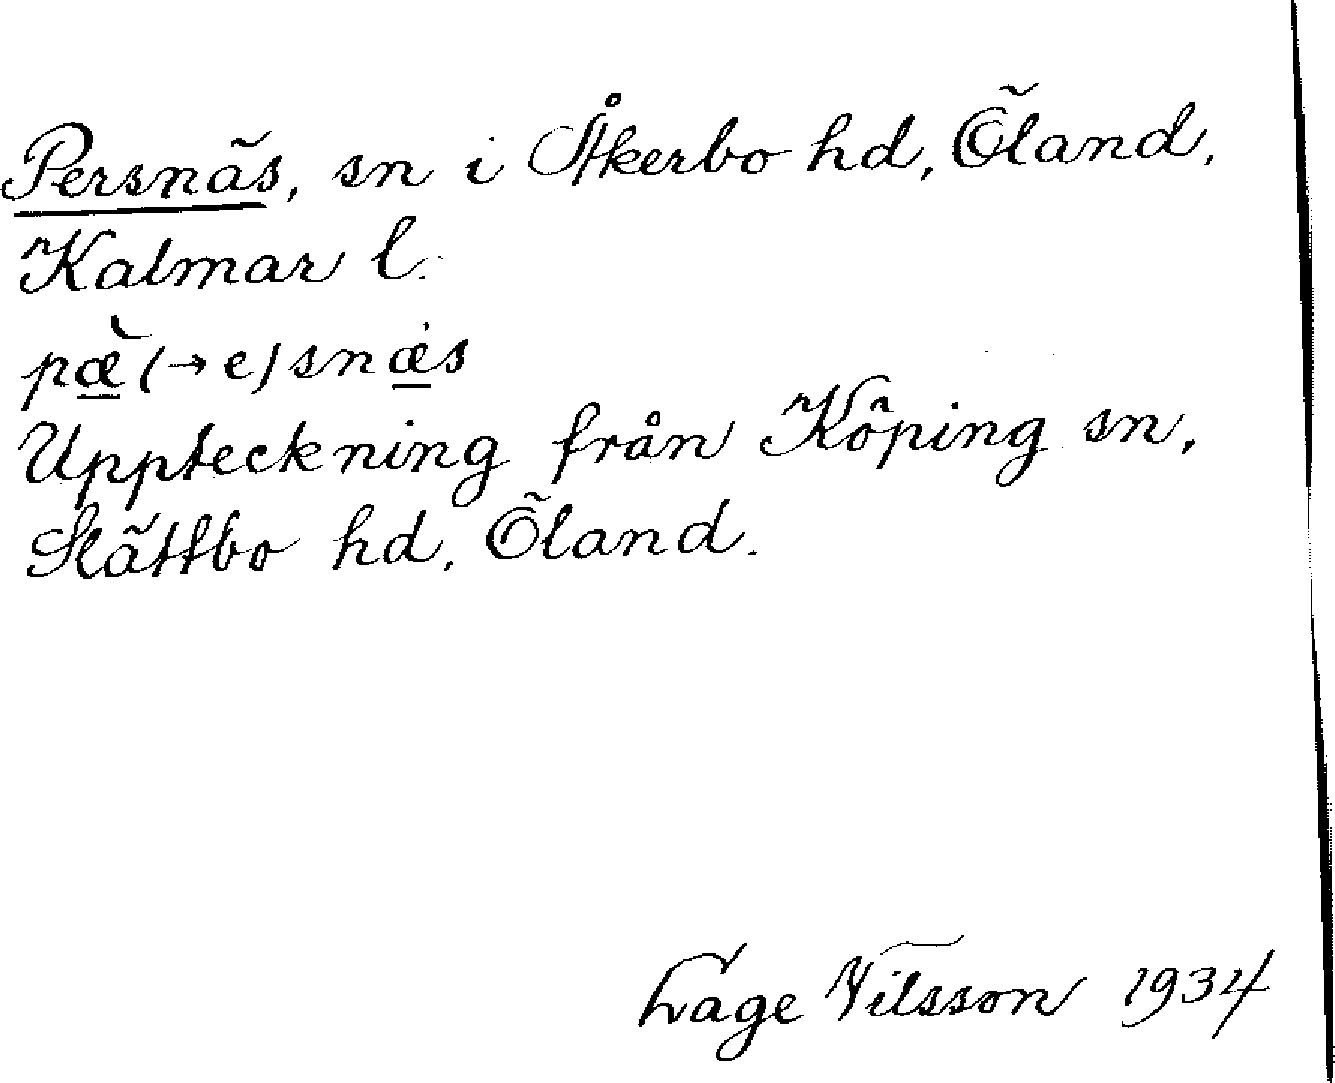 Persnäs, sn i Åkerbo hd, Öland,
Kalmar l.
pæ̲̀(→e)snǽ̲s
Uppteckning från Köping sn,
Slättbo hd, Öland.
Lage Nilsson 1934